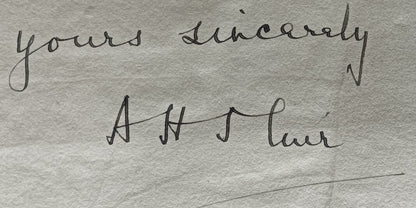 yours sincerely
A H Muir